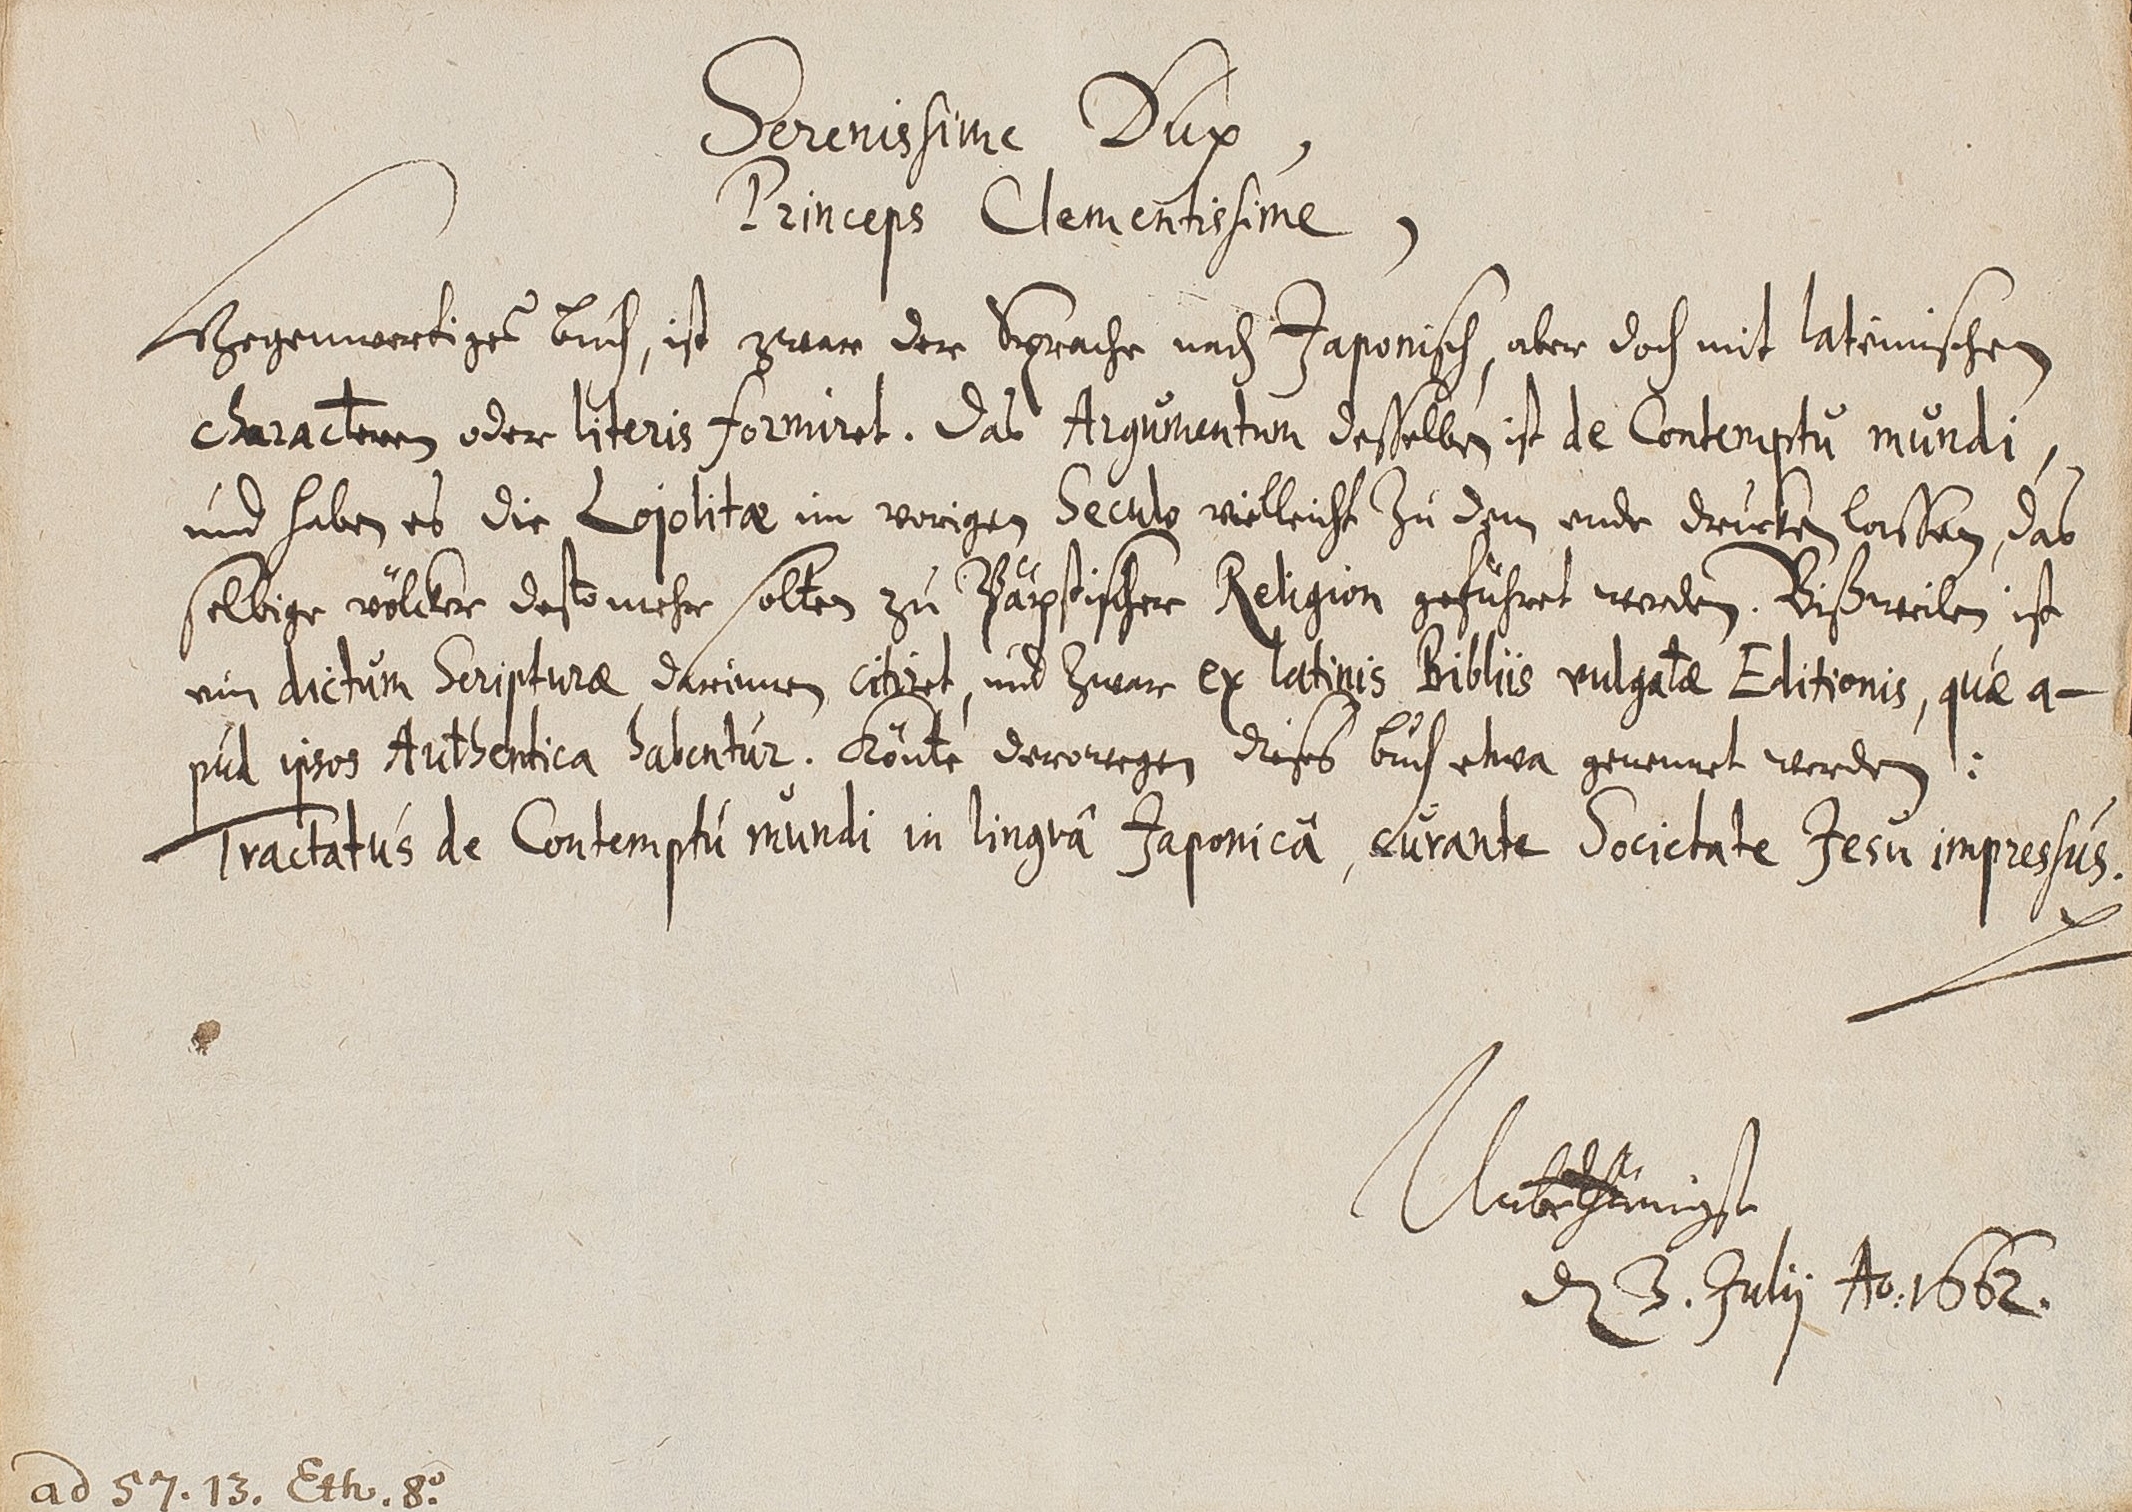 Serenissime Dux,
Princeps Clementissime,
Gegenwertiges buch, ist zwar der Sprache nach Japonisch, aber doch mit lateinischen
characteren oder literis formiret. Das Argumentum desselben ist de Contemptu mundi,
und haben es die Lojolitæ im vorigen Seculo vielleicht zu dem ende drucken lassen, das
selbige völcker destomehr solten zu Päpstischer Religion geführet werden. Bißweilen ist
ein dictum Scripturæ darinnen citiret, und zwar ex latinis Bibliis vulgatæ Editionis, quæ a-
pud ipsos Authentica habentur. Könte derowegen dieses buch etwa genennet werden:
Tractatus de Contemptu mundi in linguâ Japonicâ, curante Societate Jesu impressus.
Unterthänigst
3. Julij Ao: 1662.
ad 57. 13. Eth. 8º.